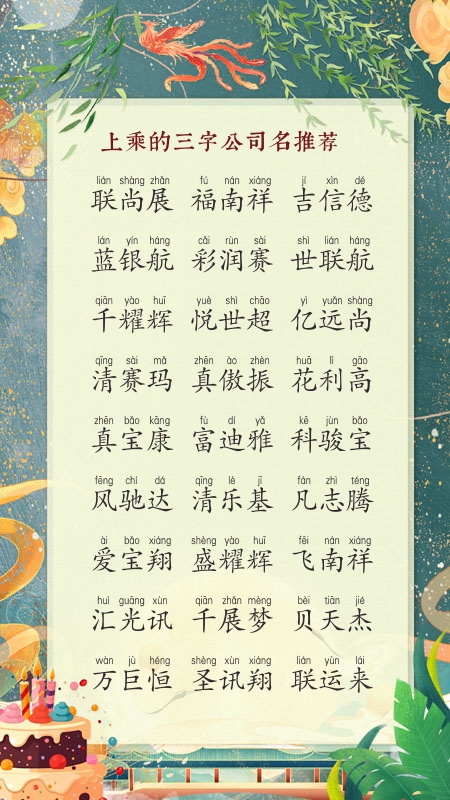 上乘的三字公司名推荐
lián shàng zhǎn fú nán xiáng jí xìn dé
联尚展 福南祥 吉信德
lán yín háng cǎi rùn sài shì lián háng
蓝银航 彩润赛 世联航
qiān yào huī yuè shì chāo yì yuǎn shàng
千耀辉 悦世超 亿远尚
qīng sài mǎ zhēn ào zhèn huā lì gāo
清赛玛 真傲振 花利高
zhēn bǎo kāng fù dí yǎ kē jùn bǎo
真宝康 富迪雅 科骏宝
fēng chí dá qīng lè jī fán zhì téng
风驰达 清乐基 凡志腾
ài bǎo xiáng shèng yào huī fēi nán xiáng
爱宝翔 盛耀辉 飞南祥
huì guāng xùn qiān zhǎn mèng bèi tiān jié
汇光讯 千展梦 贝天杰
wàn jù héng shèng xùn xiáng lián yùn lái
万巨恒 圣讯翔 联运来